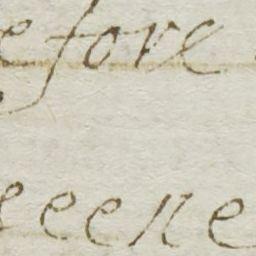 efore
eeene